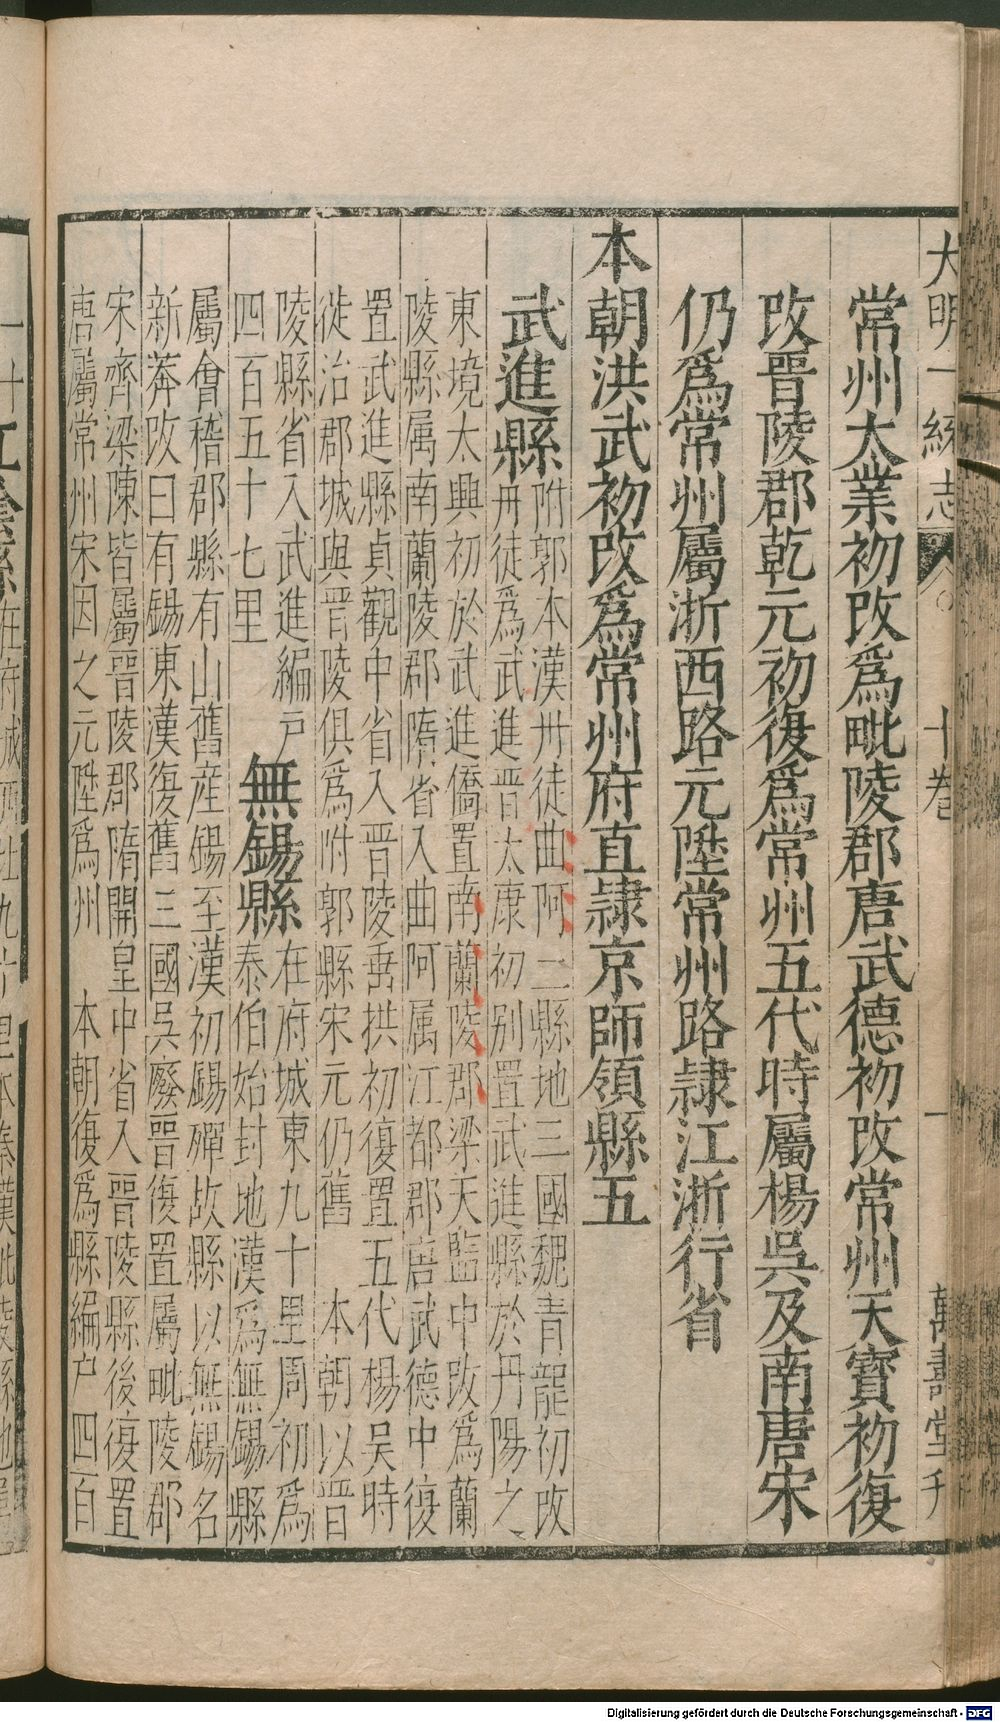 大明一統志 十卷 一 萬壽堂刋
常州太業初改爲毗陵郡唐武德初改常州天寶初復
改晉陵郡乾元初復爲常州五代時屬楊吳及南唐宋
仍爲常州屬浙西路元陞常州路隷江浙行省
本朝洪武初改爲常州府直隷京師領縣五
武進縣
附郭本漢丹徒曲阿二縣地三國魏青龍初改
丹徒爲武進晉太康初别置武進縣於丹陽之
東境太興初於武進僑置南蘭陵郡梁天監中改爲蘭
陵縣属南蘭陵郡隋省入曲阿属江都郡唐武德中復
置武進縣貞觀中省入晉陵垂拱初復置五代楊吴時
徙治郡城與晉陵俱爲附郭縣宋元仍舊 本朝以晉
陵縣省入武進編戸
四百五十七里
無錫縣
在府城東九十里周初爲
泰伯始封地漢爲無錫縣
屬會稽郡縣有山舊産錫至漢初錫殫故縣以無錫名
新莽改曰有錫東漢復舊三國吳廢晉復置屬毗陵郡
宋齊梁陳皆屬晉陵郡隋開皇中省入晉陵縣後復置
唐屬常州宋因之元陞爲州 本朝復爲縣編户四百
江陰縣
在府城西北九十里本秦漢毗陵縣地
Digitalisierung gefördert durch die Deutsche Forschungsgemeinschaft - DFG